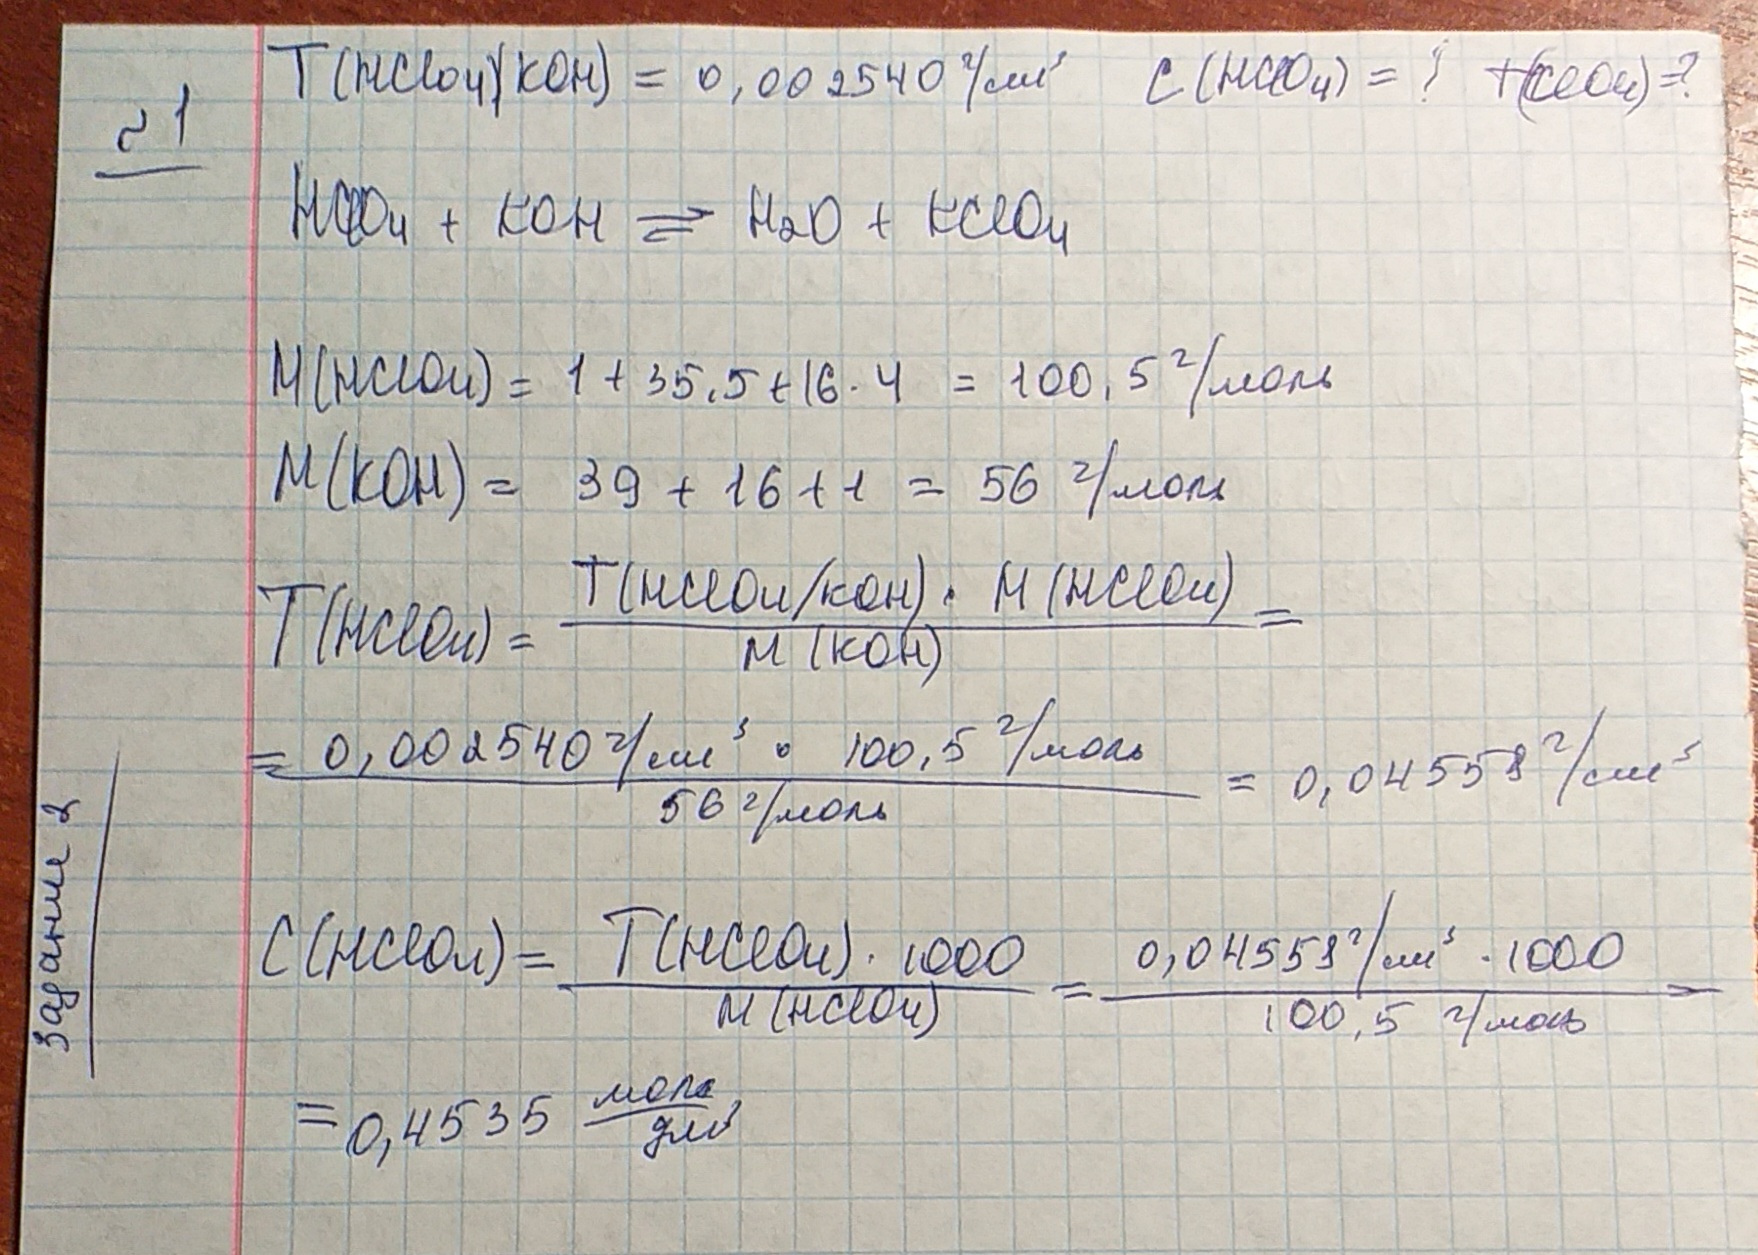 №1
T(HClO4/KOH) = 0,002540 г/см³ C(HClO4) = ? T(HClO4) = ?
HClO4 + KOH ⇌ H2O + KClO4
M(HClO4) = 1 + 35,5 + 16·4 = 100,5 г/моль
M(KOH) = 39 + 16 + 1 = 56 г/моль
T(HClO4) = T(HClO4/KOH) · M(HClO4) / M(KOH) =
= 0,002540 г/см³ · 100,5 г/моль / 56 г/моль = 0,04558 г/см³
C(HClO4) = T(HClO4) · 1000 / M(HClO4) = 0,04558 г/см³ · 1000 / 100,5 г/моль
= 0,4535 моль/дм³
Задание 2